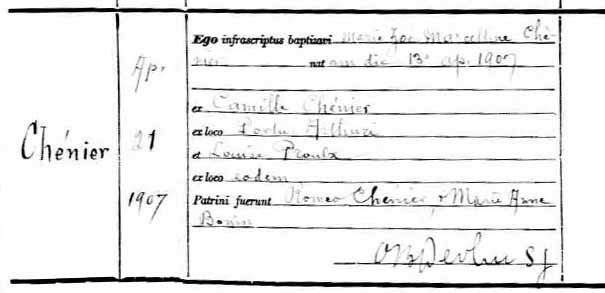 Chénier
Ap.
21
1907
Ego infrascriptus baptizavi Marie Zoe Marcelline Ché-
nier natam die 13a ap. 1907
ex Camille Chénier
ex loco Portu Arthuri
et Louise Proulx
ex loco eodem
Patrini fuerunt Romeo Chénier & Marie Anne
Bonin
Devlin SJ